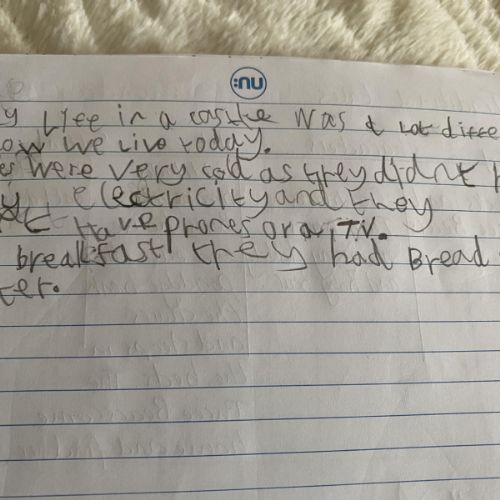 :nu
y Life in a castle was a lot diffe
ow we live today.
es were very cold as they didnt h
y electricity and they
t Have phones or a T.V.
breakfast they had Bread
ter.